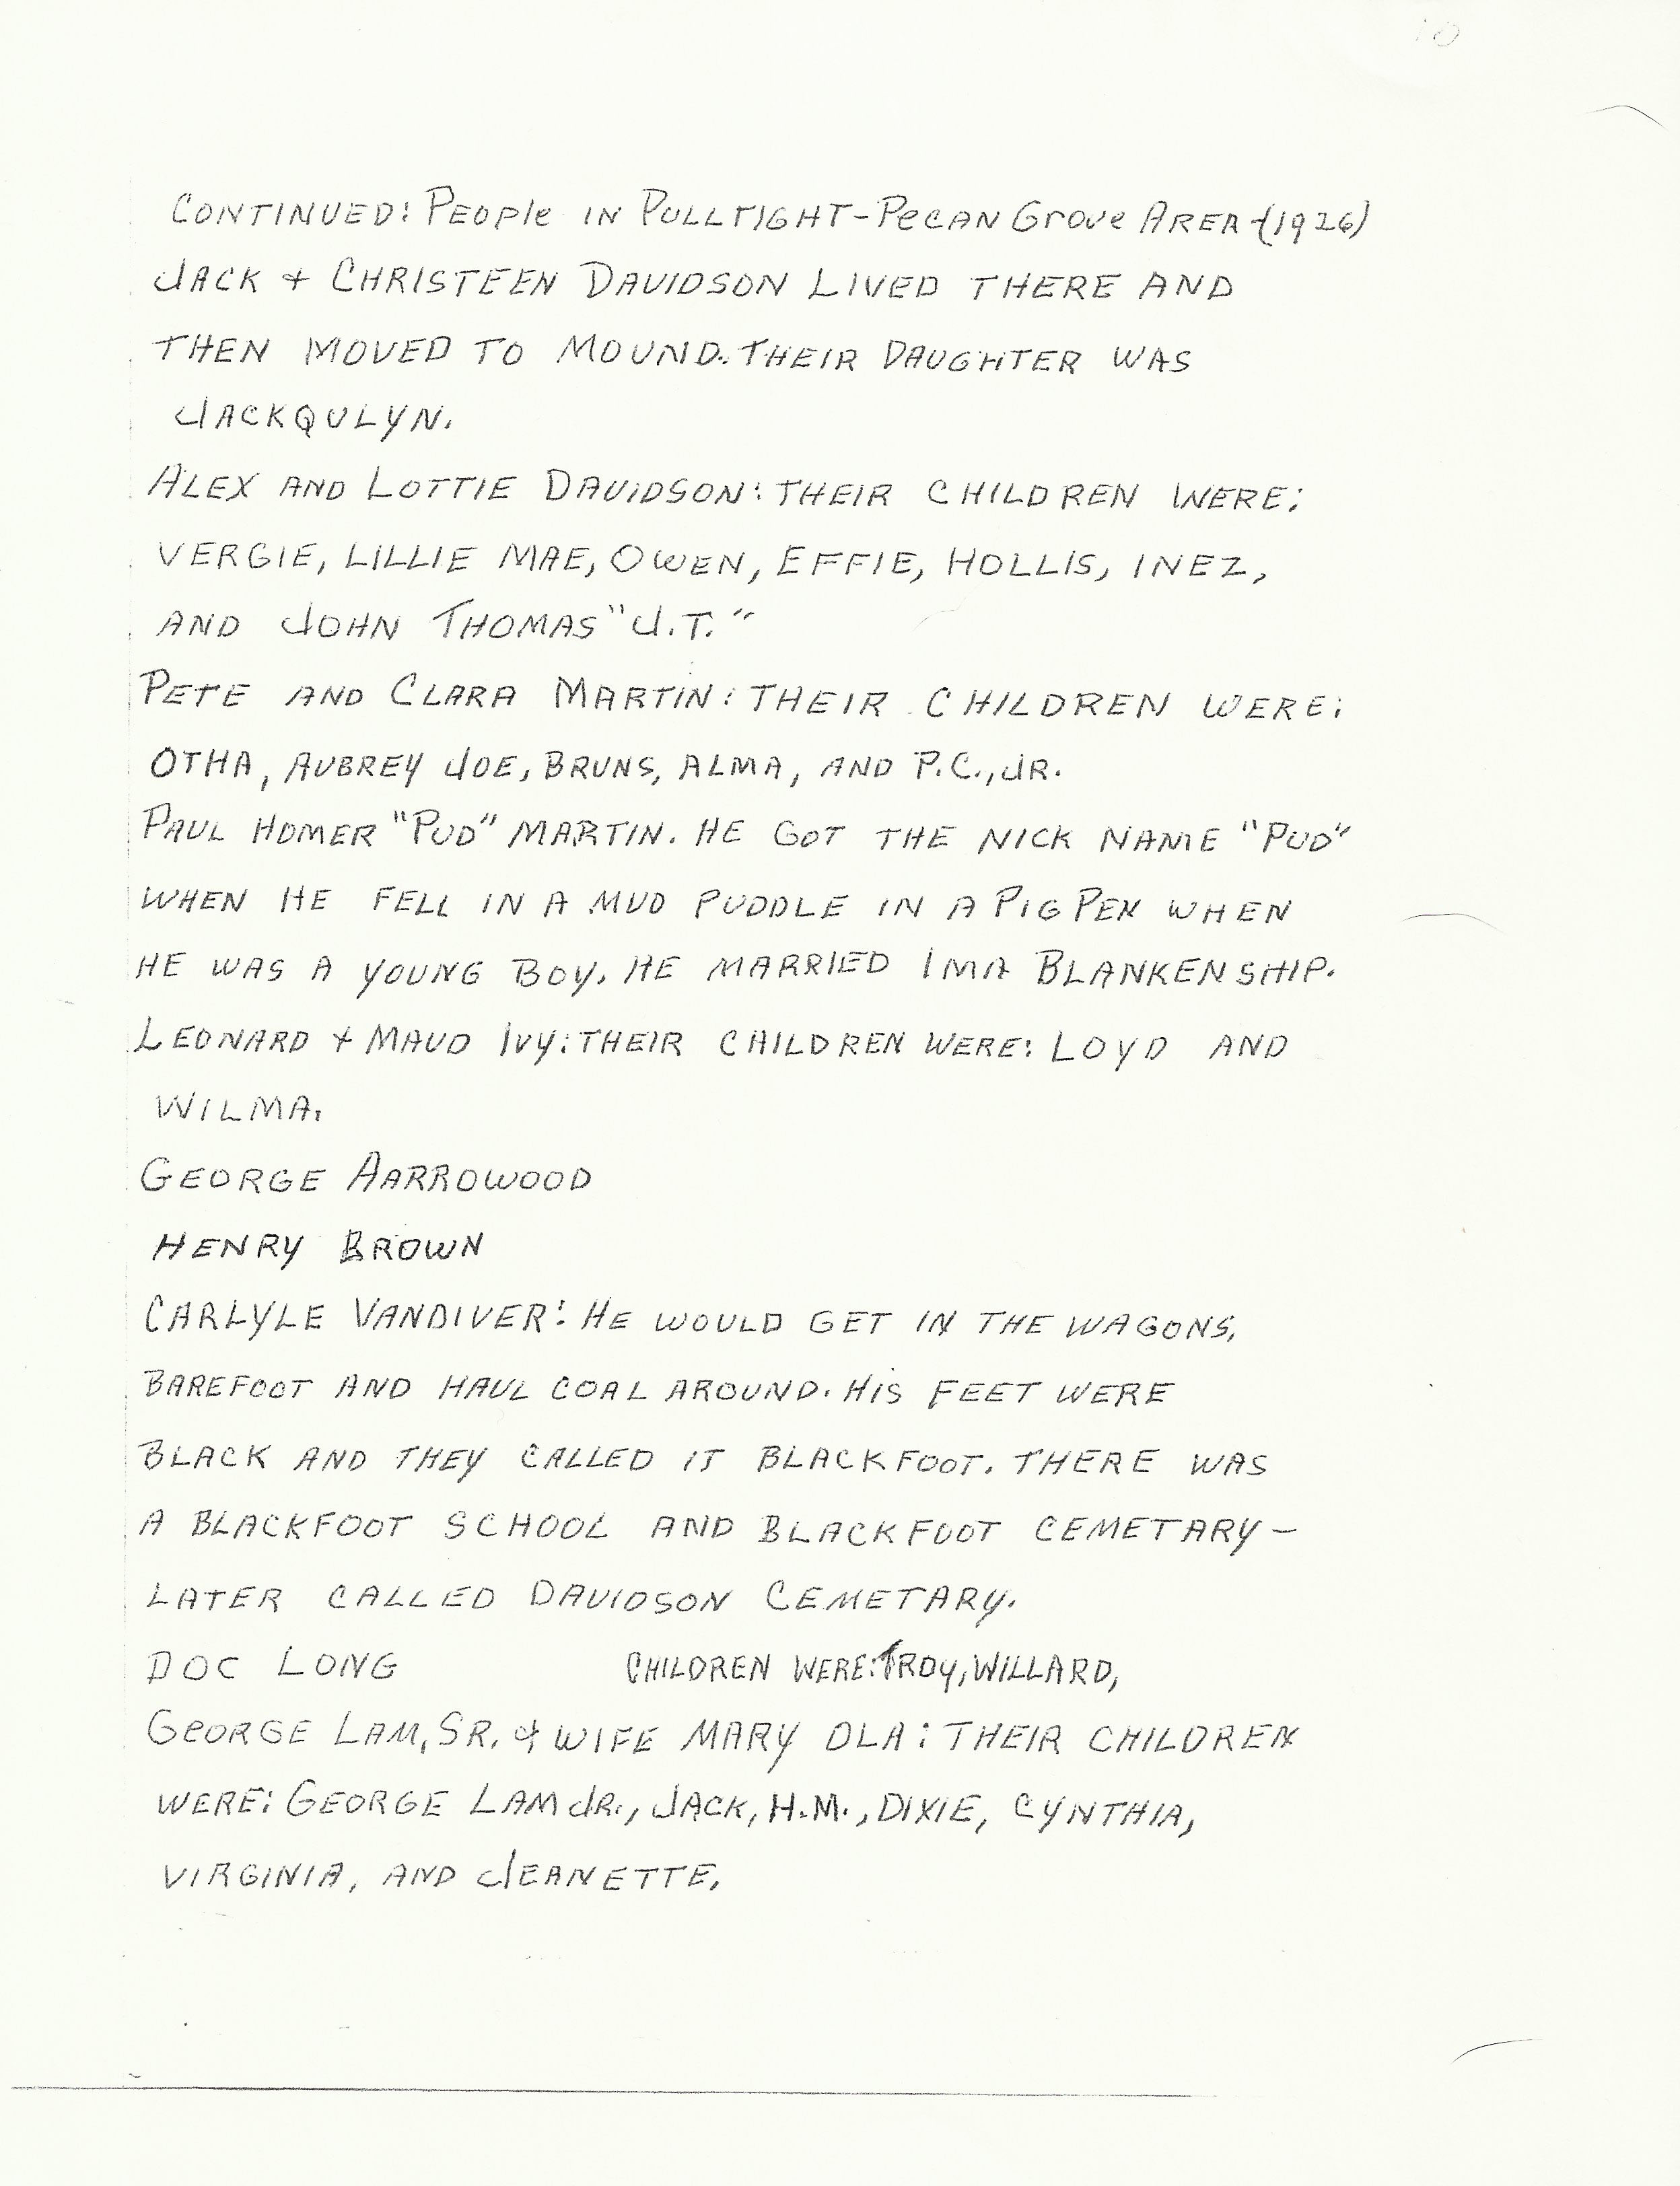 10
CONTINUED: PEOPle IN PULLTIGHT-PeCAN Grove AREA-(1926)
JACK + CHRISTEEN DAVIDSON LIVED THERE AND
THEN MOVED TO MOUND. THEIR DAUGHTER WAS
JACKQULYN.
ALEX AND LOTTIE DAVIDSON: THEIR CHILDREN WERE:
VERGIE, LILLIE MAE, OWEN, EFFIE, HOLLIS, INEZ,
AND JOHN THOMAS "J.T."
PETE AND CLARA MARTIN: THEIR CHILDREN WERE:
OTHA, AUBREY JOE, BRUNS, ALMA, AND P.C., JR.
PAUL HOMER "PUD" MARTIN. HE GOT THE NICK NAME "PUD"
WHEN HE FELL IN A MUD PUDDLE IN A PIG PEN WHEN
HE WAS A YOUNG BOY. HE MARRIED IMA BLANKENSHIP.
LEONARD + MAUD IVY: THEIR CHILDREN WERE: LOYD AND
WILMA.
GEORGE AARROWOOD
HENRY BROWN
CARLYLE VANDIVER: HE WOULD GET IN THE WAGONS,
BAREFOOT AND HAUL COAL AROUND. HIS FEET WERE
BLACK AND THEY CALLED IT BLACKFOOT. THERE WAS
A BLACKFOOT SCHOOL AND BLACKFOOT CEMETARY-
LATER CALLED DAVIDSON CEMETARY.
DOC LONG CHILDREN WERE: TROY, WILLARD,
GEORGE LAM, SR. & WIFE MARY OLA: THEIR CHILDREN
WERE: GEORGE LAM JR., JACK, H.M., DIXIE, CYNTHIA,
VIRGINIA, AND JEANETTE.